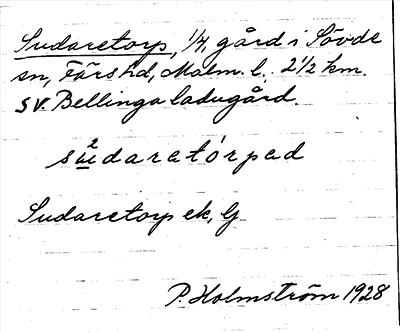 Sudaretorp, 1/4, gård i Sövde
sn, Färs hd, Malm. l. 2 1/2 km.
SV. Bellinga ladugård.
su²daratórpad
Sudaretorp ek, G
P. Holmström 1928